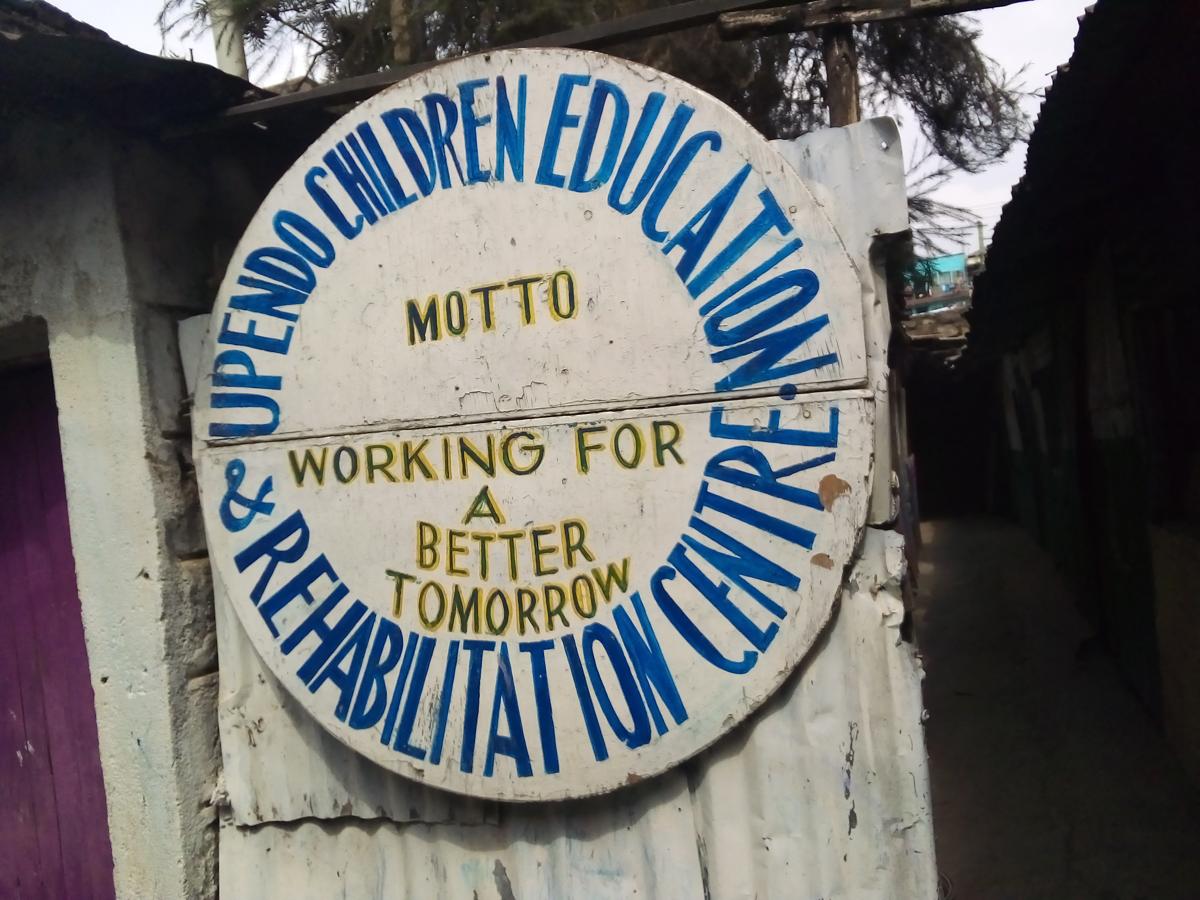 UPENDO CHILDREN EDUCATION.
& REHABILITATION CENTRE
MOTTO
WORKING FOR
A
BETTER
TOMORROW